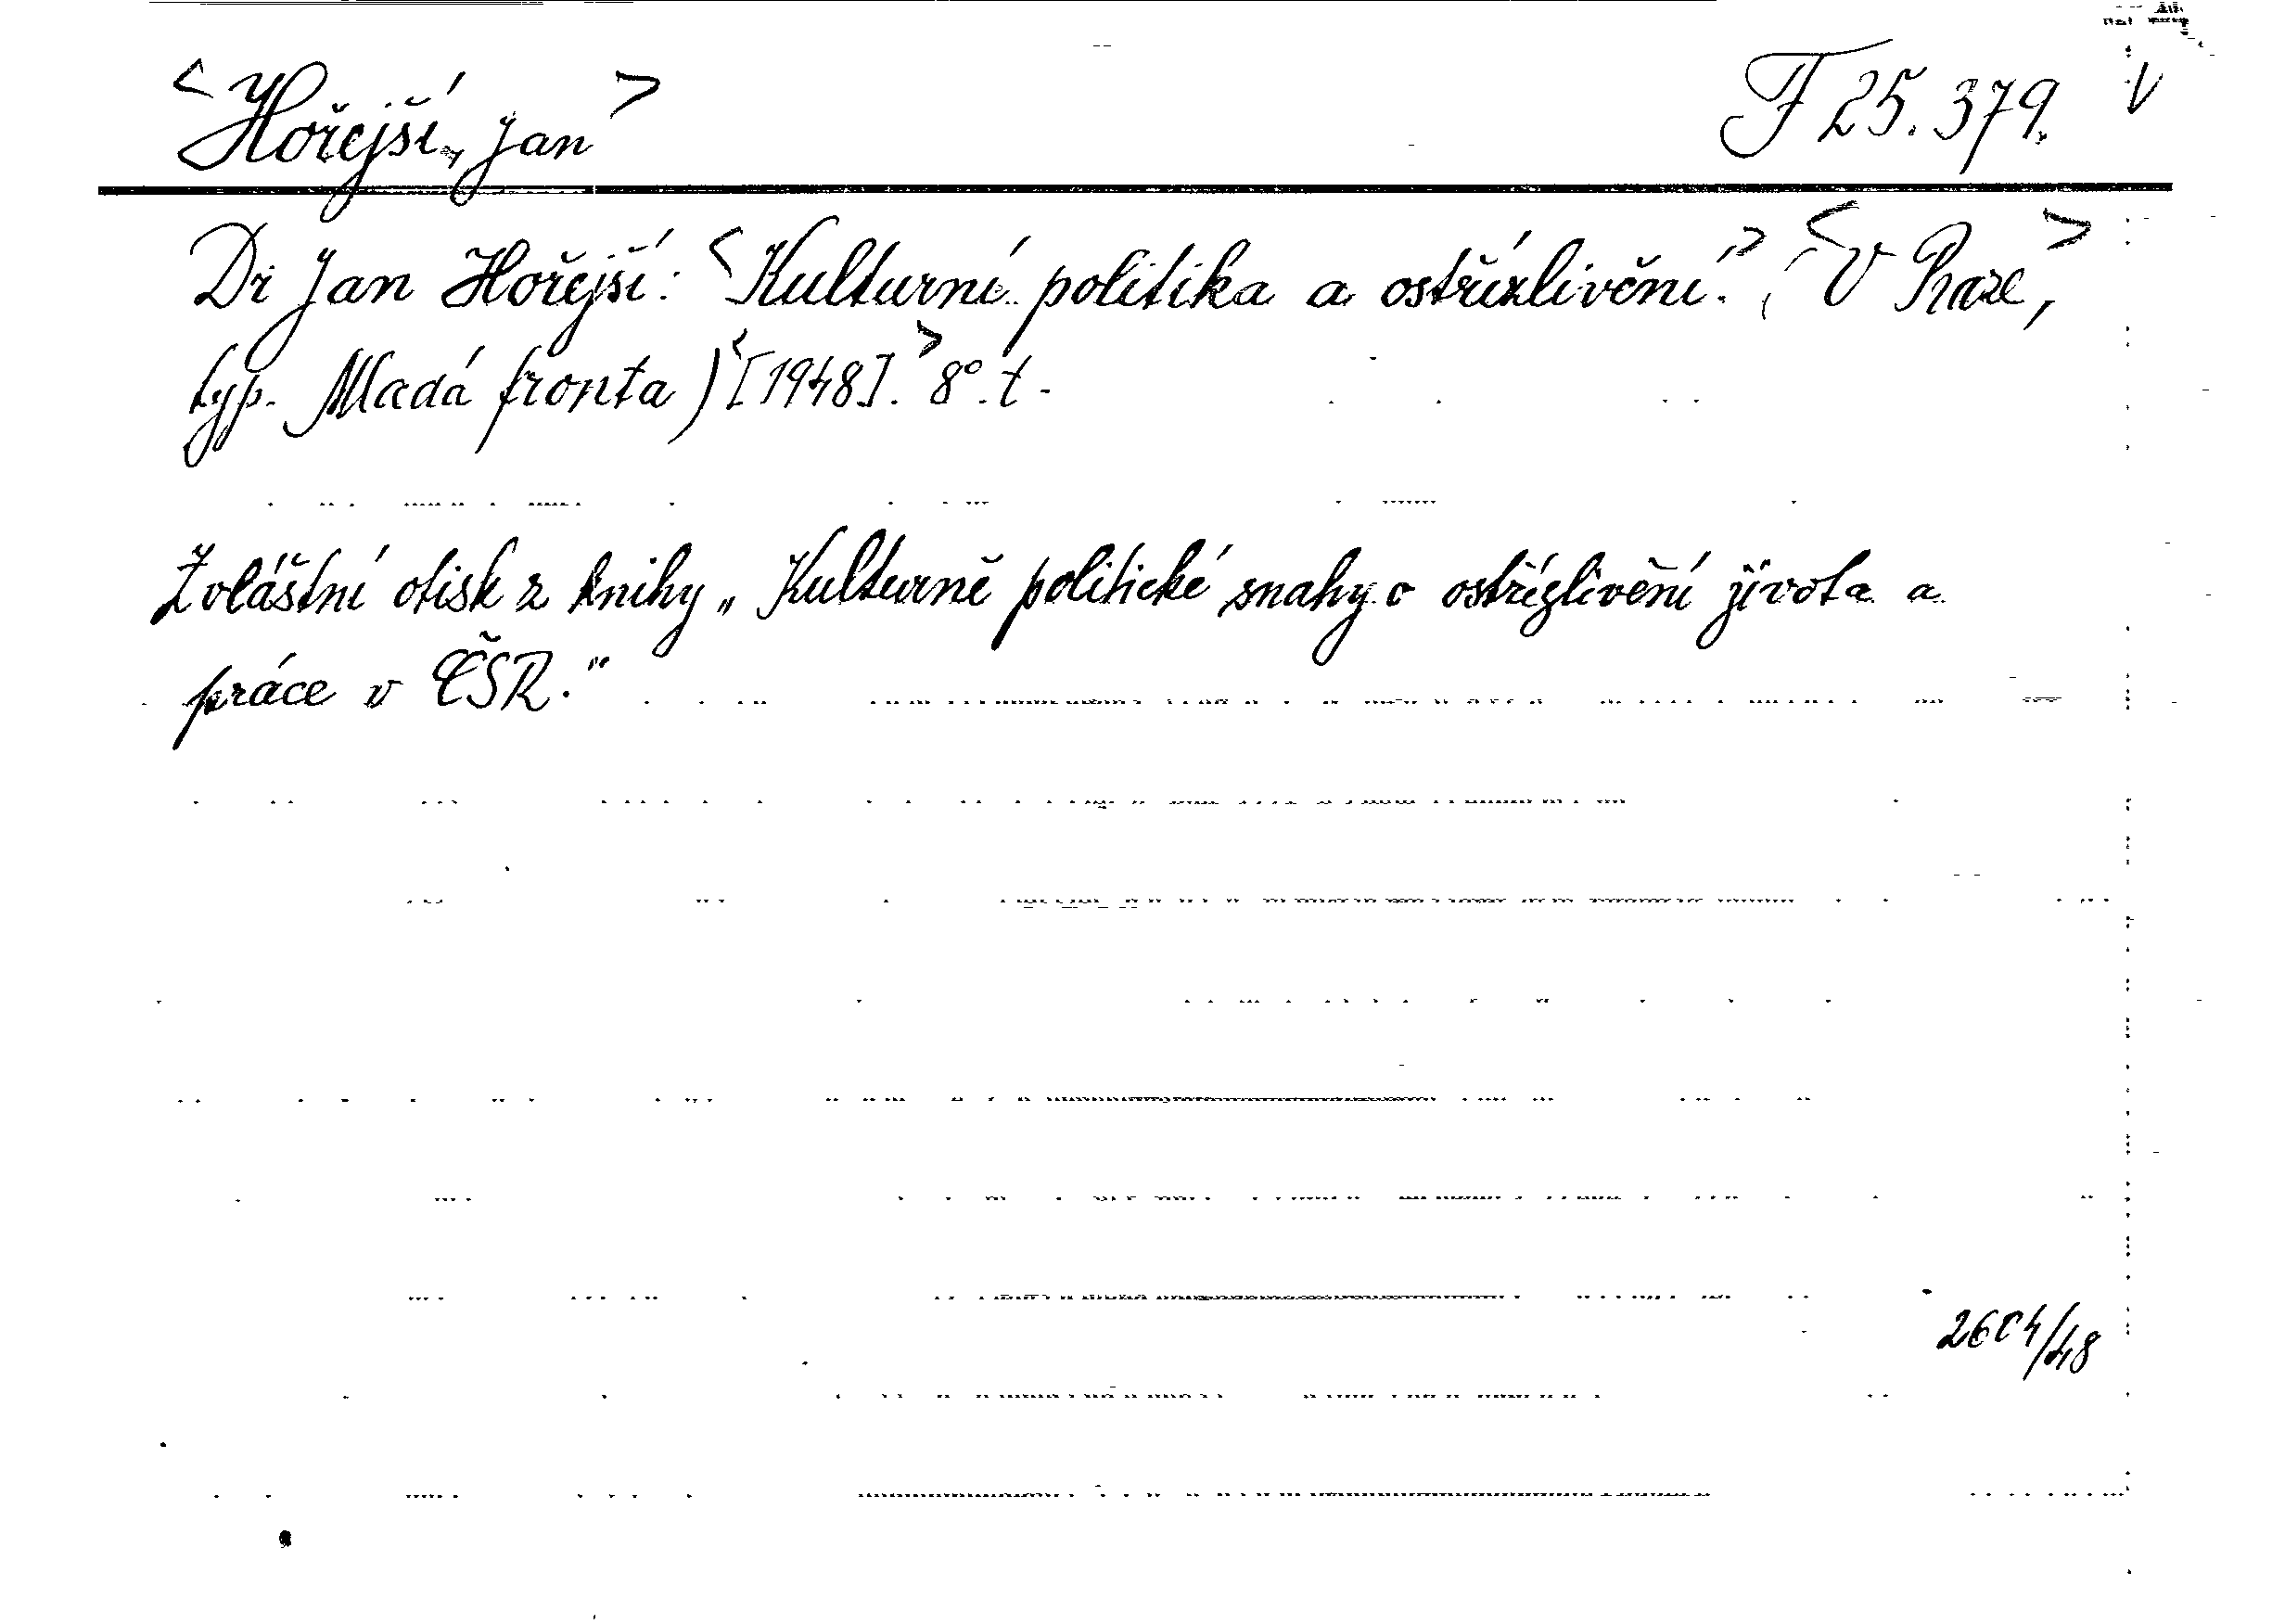 <Hořejší, Jan> F 25.379. V
Dr Jan Hořejší: <Kulturní politika a ostřízlivění.>, (<V Praze,>
typ. Mladá fronta) <[1948].> 8°. t.
Zvláštní otisk z knihy „Kulturně politické snahy o ostřízlivění života a
práce v ČSR.“
2604/48